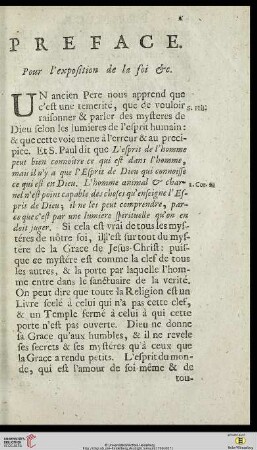 PREFACE.
Pour l'exposition de la foi &c.
UN ancien Pere nous apprend que
c'est une temerité, que de vouloir
raisonner & parler des mysteres de
Dieu selon les lumieres de l'esprit humain:
& que cette voie mene à l'erreur & au preci-
pice. Et S. Paul dit que L'esprit de l'homme
peut bien connoitre ce qui est dans l'homme,
mais il n'y a que l'Esprit de Dieu qui connoisse
ce qui est en Dieu. L'homme animal & char-
nel n'est point capable des choses qu'enseigne l'Es-
prit de Dieu; il ne les peut comprendre, par-
ce que c'est par une lumiere spirituelle qu'on en
doit juger. Si cela est vrai de tous les mys-
teres de nôtre foi, il l'est sur tout du mys-
tére de la Grace de Jesus-Christ: puis-
que ce mystére est comme la clef de tous
les autres, & la porte par laquelle l'hom-
me entre dans le sanctuaire de la verité.
On peut dire que toute la Religion est un
Livre scelé à celui qui n'a pas cette clef,
& un Temple fermé à celui à qui cette
porte n'est pas ouverte. Dieu ne donne
sa Grace qu'aux humbles, & il ne revele
ses secrets & ses mystéres qu'à ceux que
la Grace a rendu petits. L'esprit du mon-
de, qui est l'amour de soi même & de
tou-
1. Cor.